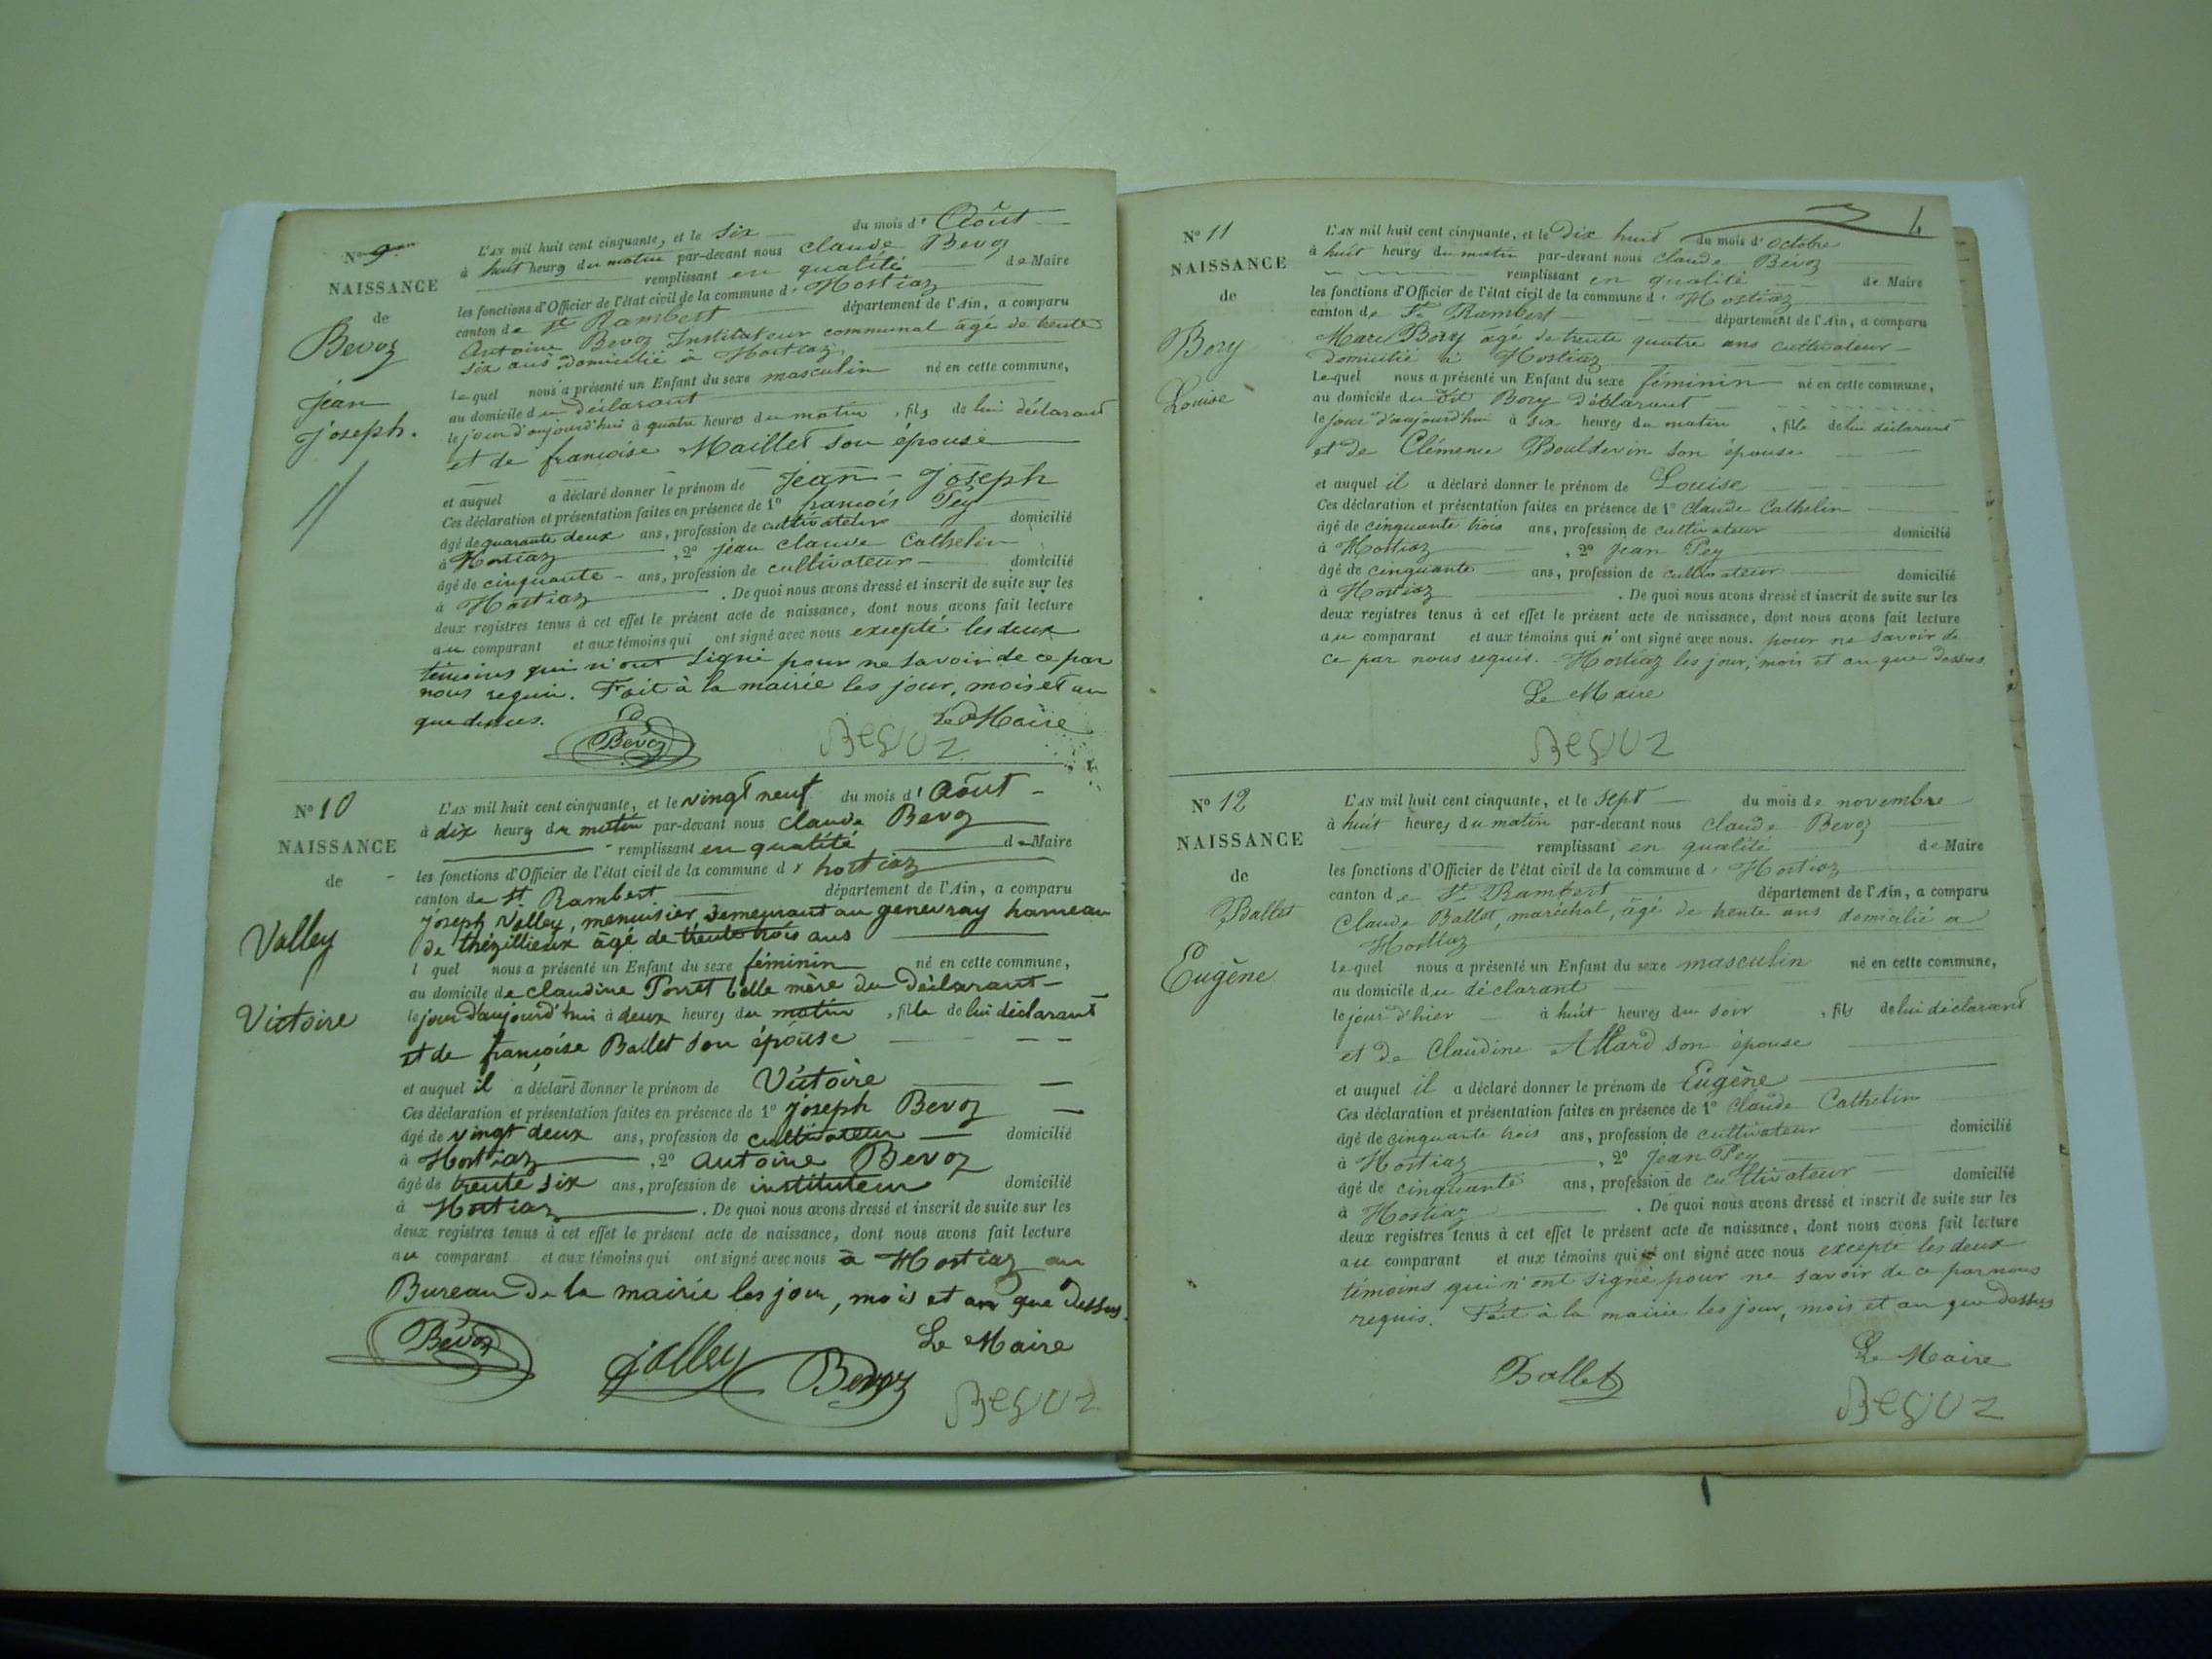 N° 9
NAISSANCE
de
Bevoz
Jean
Joseph.
L'AN mil huit cent cinquante, et le six du mois d'Août
à huit heures du matin par-devant nous Claude Bevoz
remplissant en qualité de Maire
les fonctions d'Officier de l'état civil de la commune d'Hostiaz
canton de St Rambert département de l'Ain, a comparu
Antoine Bevoz Instituteur communal âgé de trente
six ans domicilié à Hostiaz
Lequel nous a présenté un Enfant du sexe masculin né en cette commune,
au domicile du déclarant
le jour d'aujourd'hui à quatre heures du matin, fils de lui déclarant
et de françoise Maillet son épouse
et auquel a déclaré donner le prénom de Jean-Joseph
Ces déclaration et présentation faites en présence de 1° françois Pey
âgé de quarante deux ans, profession de cultivateur domicilié
à Hostiaz, 2° jean Claude Cathelin
âgé de cinquante ans, profession de cultivateur domicilié
à Hostiaz. De quoi nous avons dressé et inscrit de suite sur les
deux registres tenus à cet effet le présent acte de naissance, dont nous avons fait lecture
au comparant et aux témoins qui ont signé avec nous excepté les deux
témoins qui n'ont signé pour ne savoir de ce par
nous requis. Fait à la mairie les jour, mois et an
que dessus.
Le Maire
Bévoz
BeVUZ
N° 10
NAISSANCE
de
Valley
Victoire
L'AN mil huit cent cinquante, et le vingt neuf du mois d'Août
à dix heures du matin par-devant nous Claude Bevoz
remplissant en qualité de Maire
les fonctions d'Officier de l'état civil de la commune d'hostiaz
canton de St Rambert département de l'Ain, a comparu
Joseph Valley, menuisier demeurant au genevray hameau
de thézillieux âgé de trente trois ans
l quel nous a présenté un Enfant du sexe féminin né en cette commune,
au domicile de Claudine Porret belle mère du déclarant
le jour d'aujourd'hui à deux heures du matin, fille de lui déclarant
et de françoise Ballet son épouse
et auquel il a déclaré donner le prénom de Victoire
Ces déclaration et présentation faites en présence de 1° Joseph Bevoz
âgé de vingt deux ans, profession de cultivateur domicilié
à Hostiaz, 2° Antoine Bevoz
âgé de trente six ans, profession de instituteur domicilié
à Hostiaz. De quoi nous avons dressé et inscrit de suite sur les
deux registres tenus à cet effet le présent acte de naissance, dont nous avons fait lecture
au comparant et aux témoins qui ont signé avec nous à Hostiaz au
Bureau de la mairie les jour, mois et an que dessus.
Le Maire
Bévoz jvalley Bevoz BeVUZ
4
N° 11
NAISSANCE
de
Bory
Louise
L'AN mil huit cent cinquante, et le dix huit du mois d'octobre
à huit heures du matin par-devant nous Claude Bévoz
remplissant en qualité de Maire
les fonctions d'Officier de l'état civil de la commune d'Hostiaz
canton de St Rambert département de l'Ain, a comparu
Marc Bory âgé de trente quatre ans cultivateur
domicilié à Hostiaz
Lequel nous a présenté un Enfant du sexe féminin né en cette commune,
au domicile du dit Bory déclarant
le jour d'aujourd'hui à six heures du matin, fille de lui déclarant
et de Clémence Bouldevin son épouse
et auquel il a déclaré donner le prénom de Louise
Ces déclaration et présentation faites en présence de 1° Claude Cathelin
âgé de cinquante trois ans, profession de cultivateur domicilié
à Hostiaz, 2° Jean Pey
âgé de cinquante ans, profession de cultivateur domicilié
à Hostiaz. De quoi nous avons dressé et inscrit de suite sur les
deux registres tenus à cet effet le présent acte de naissance, dont nous avons fait lecture
au comparant et aux témoins qui n'ont signé avec nous. pour ne savoir de
ce par nous requis. Hostiaz les jour, mois et an que dessus.
Le Maire
BeVUZ
N° 12
NAISSANCE
de
Ballet
Eugène
L'AN mil huit cent cinquante, et le sept du mois de novembre
à huit heures du matin par-devant nous Claude Bevoz
remplissant en qualité de Maire
les fonctions d'Officier de l'état civil de la commune d'Hostiaz
canton de St Rambert département de l'Ain, a comparu
Claude Ballet, maréchal, âgé de trente ans domicilié a
Hostiaz
Lequel nous a présenté un Enfant du sexe masculin né en cette commune,
au domicile du déclarant
le jour d'hier à huit heures du soir, fils de lui déclarant
et de Claudine Allard son épouse
et auquel il a déclaré donner le prénom de Eugène
Ces déclaration et présentation faites en présence de 1° Claude Cathelin
âgé de cinquante trois ans, profession de cultivateur domicilié
à Hostiaz, 2° Jean Pey
âgé de cinquante ans, profession de cultivateur domicilié
à Hostiaz. De quoi nous avons dressé et inscrit de suite sur les
deux registres tenus à cet effet le présent acte de naissance, dont nous avons fait lecture
au comparant et aux témoins qui ont signé avec nous excepté les deux
témoins qui n'ont signé pour ne savoir de ce par nous
requis. Fait à la mairie les jour, mois et an que dessus
Le Maire
Ballet BeVUZ